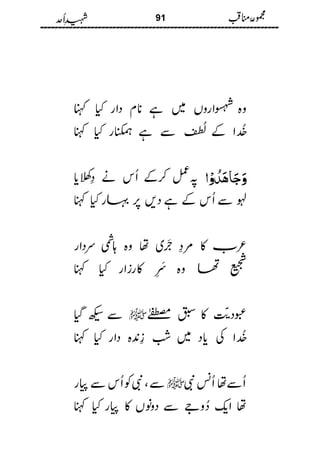 مجموعۂ مناقب 91 شہیدِ اُحد
وہ شہسواروں میں ہے نام دار کیا کہنا
خُدا کے لُطف سے ہے ہمکنار کیا کہنا
وَجَاهَدُوْا پہ عمل کرکے اُس نے دِکھلایا
لہو سے اُس کے ہے دیں پر بہار کیا کہنا
عرب کا مردِ جَری تھا وہ ہاشمی سردار
شجیع تھا وہ سَرِ کارزار کیا کہنا
عبودیّت کا سبق مصطفےٰ ﷺ سے سیکھ گیا
خُدا کی یاد میں شب زِندہ دار کیا کہنا
اُسے تھا اُنس نبی ﷺ سے، نبی کو اُس سے پیار
تھا ایک دُوجے سے دونوں کا پیار کیا کہنا